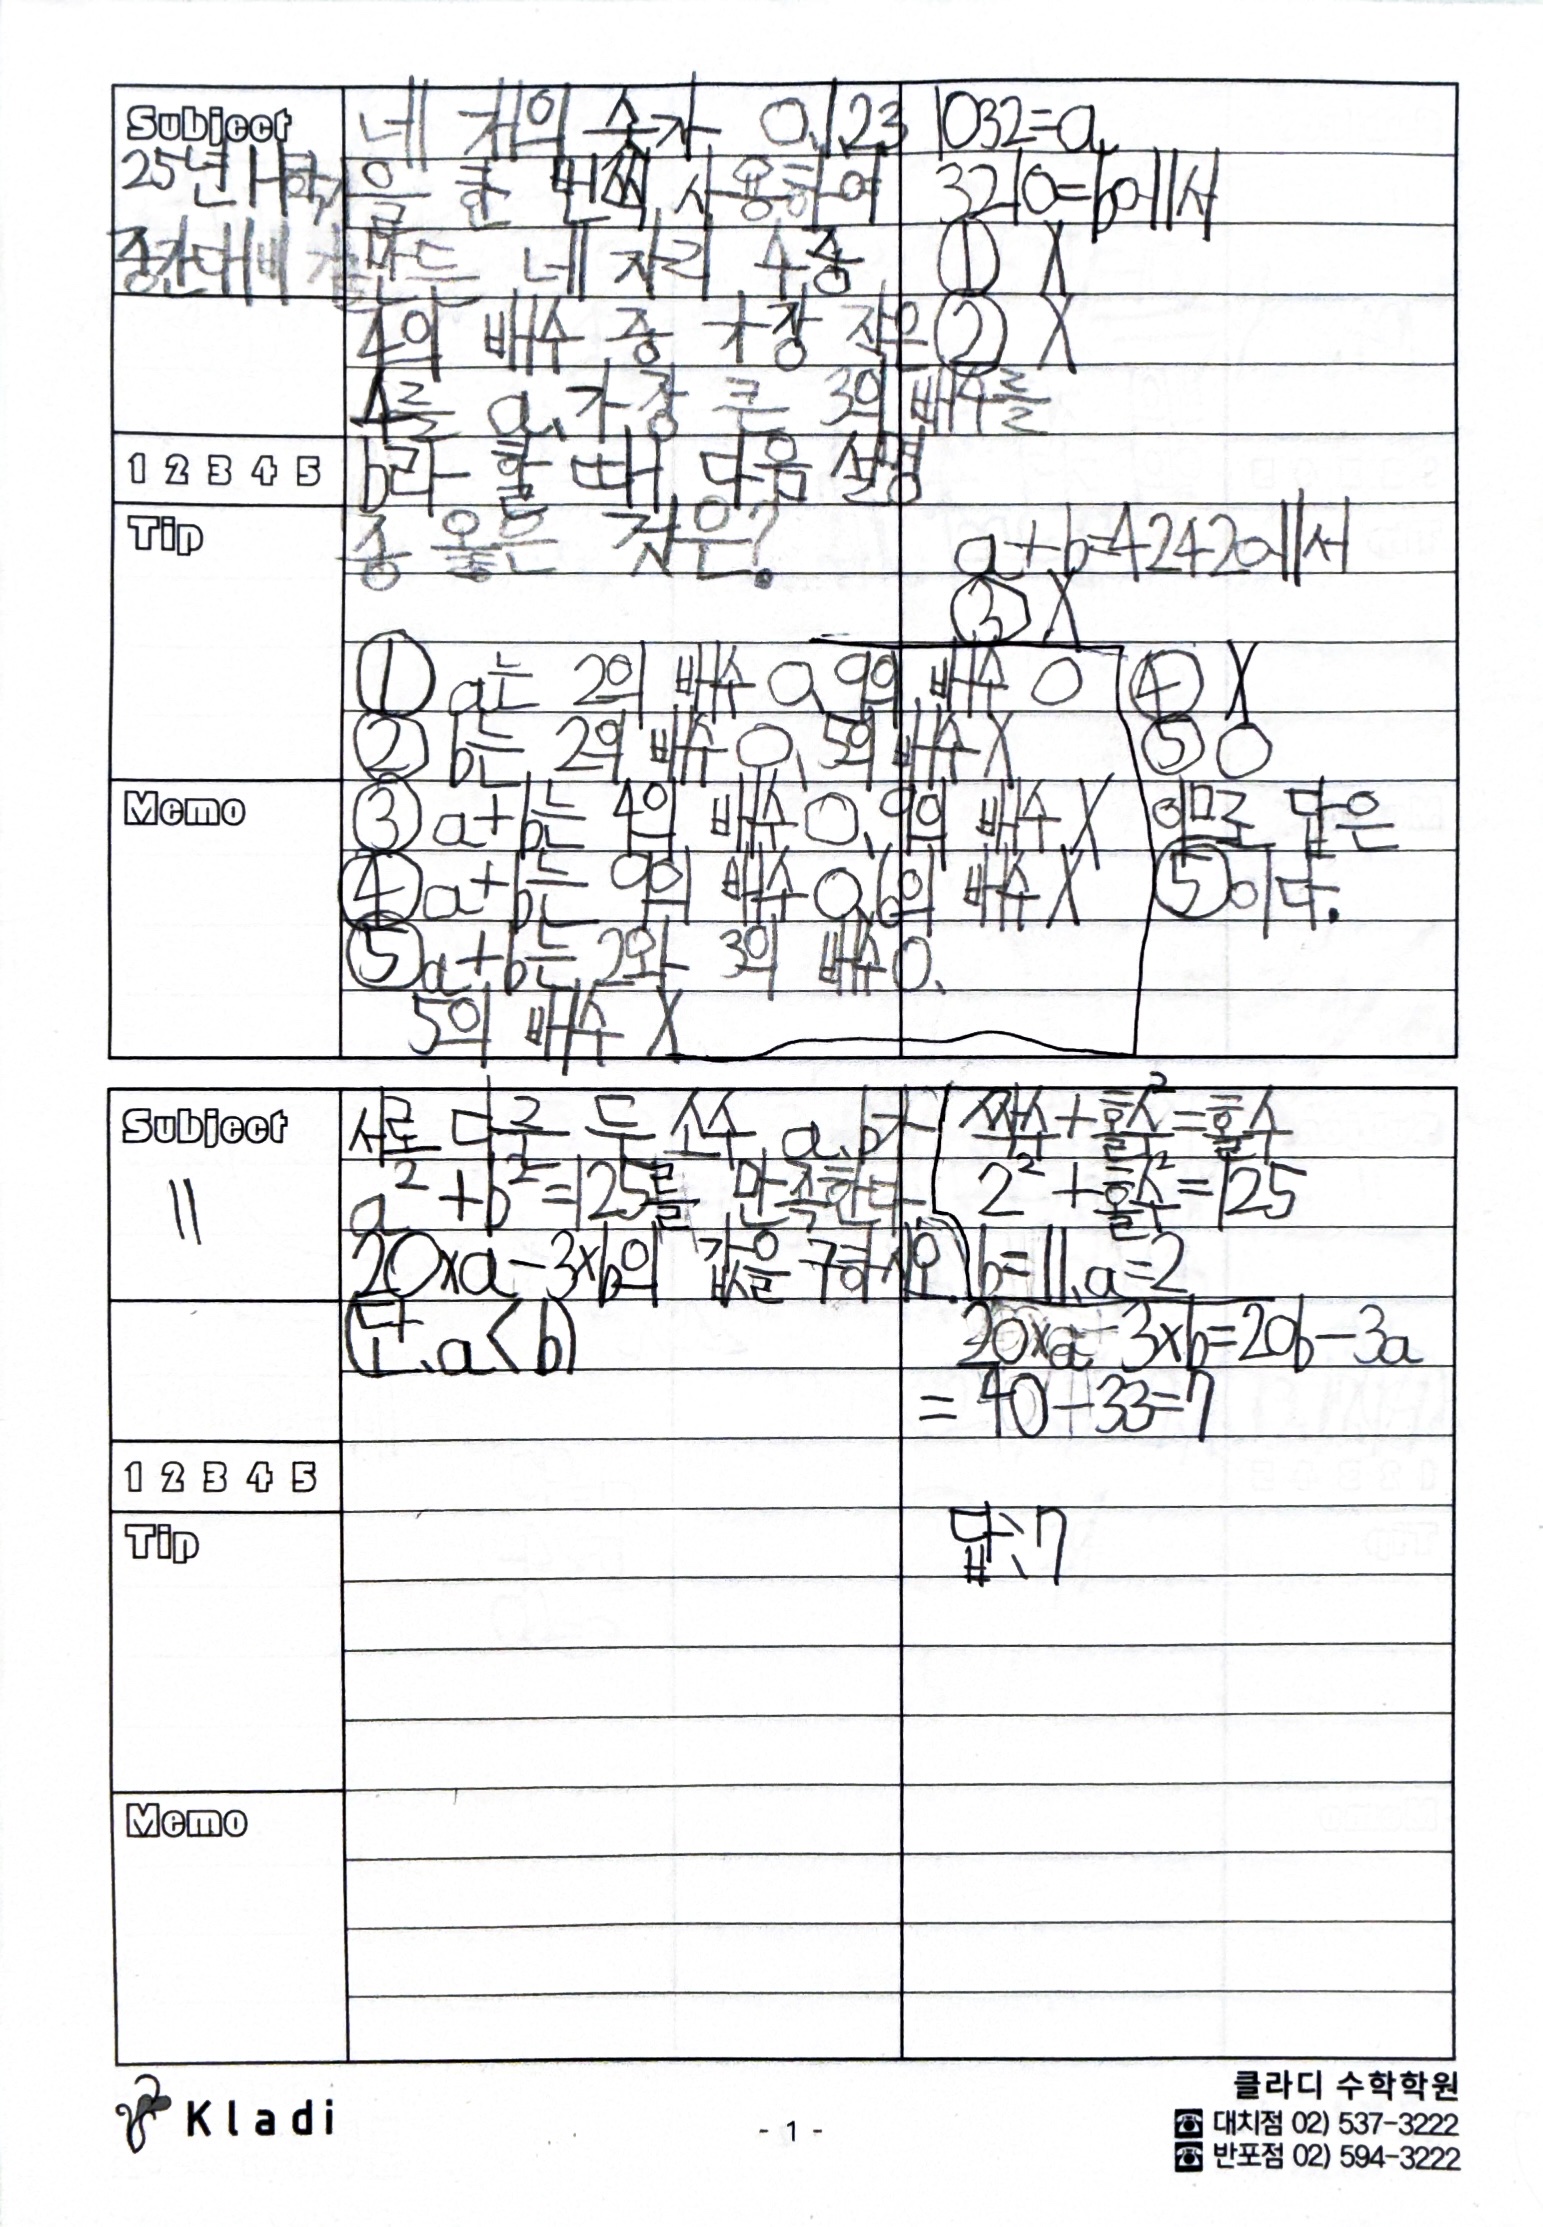 Subject
25년 1학기
중간대비
네 개의 숫자 0, 1, 2, 3
을 한 번씩 사용하여
만든 네 자리 수 중
4의 배수 중 가장 작은
수를 a, 가장 큰 3의 배수를
b라 할 때, 다음 설명
중 옳은 것은?
① a는 2의 배수 O, 9의 배수 O
② b는 2의 배수 O, 5의 배수 X
③ a+b는 4의 배수 O, 9의 배수 X
④ a+b는 9의 배수 O, 6의 배수 X
⑤ a+b는 2와 3의 배수 O,
5의 배수 X
1032=a,
3210=b에서
① X
② X
a+b=4242에서
③ X
④ X
⑤ O
이므로 답은
⑤이다.
1 2 3 4 5
Tip
Memo
Subject
"
서로 다른 두 소수 a, b가
a²+b²=125를 만족한다.
20×a-3×b의 값을 구하시오.
(단, a<b)
짝수+홀수²=홀수
2²+홀수²=125
b=11, a=2
20×a-3×b=20b-3a
=40-33=7
답: 7
1 2 3 4 5
Tip
Memo
Kladi
- 1 -
클라디 수학학원
☎ 대치점 02) 537-3222
☎ 반포점 02) 594-3222